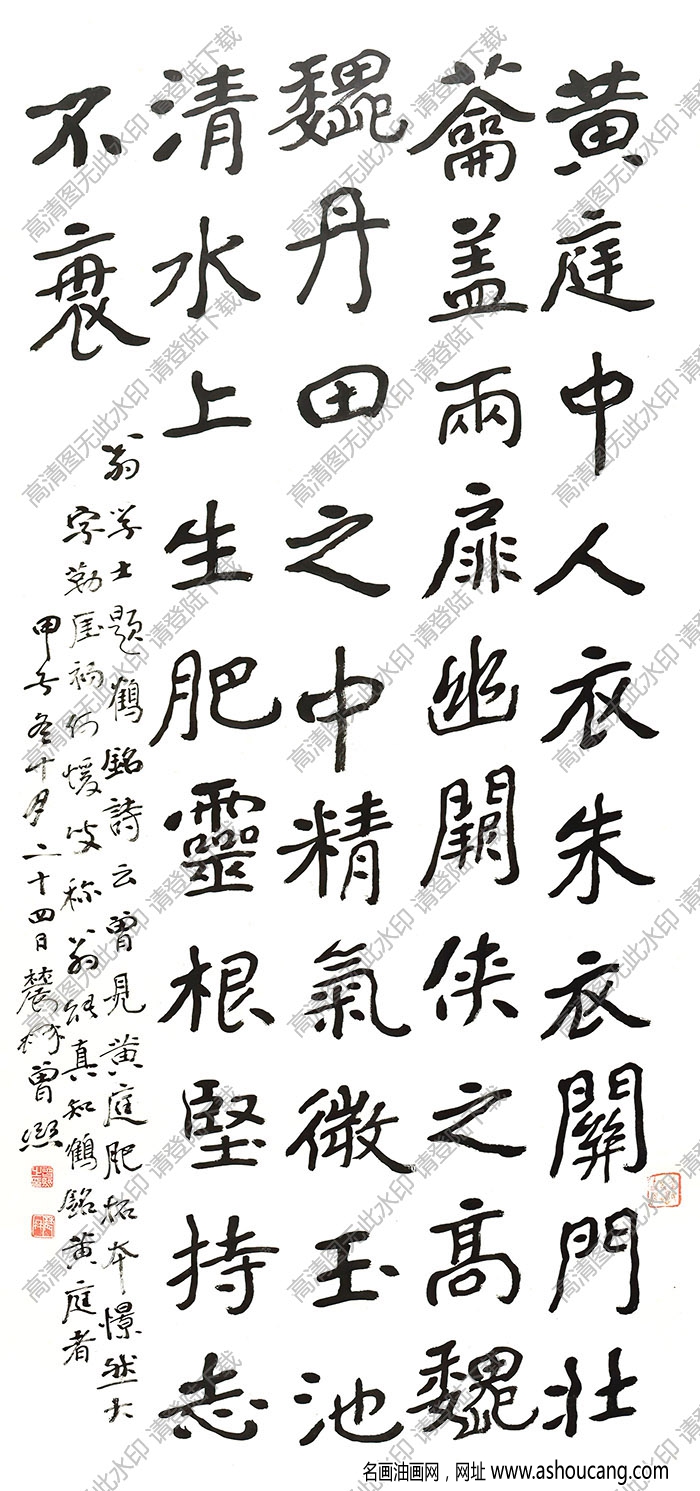 黄庭中人衣朱衣關門壯
蘥盖兩扉幽闕俠之高巍
巍丹田之中精氣微玉池
清水上生肥靈根堅持志
不衰
翁学士題鶴銘詩云曾見黄庭肥拓本憬然大
字勒厓初何蝯叟称翁能真知鶴銘黄庭者
甲子冬十月二十四日農髯曾熙
高清图无此水印 请登陆下载
名画油画网，网址 www.ashoucang.com